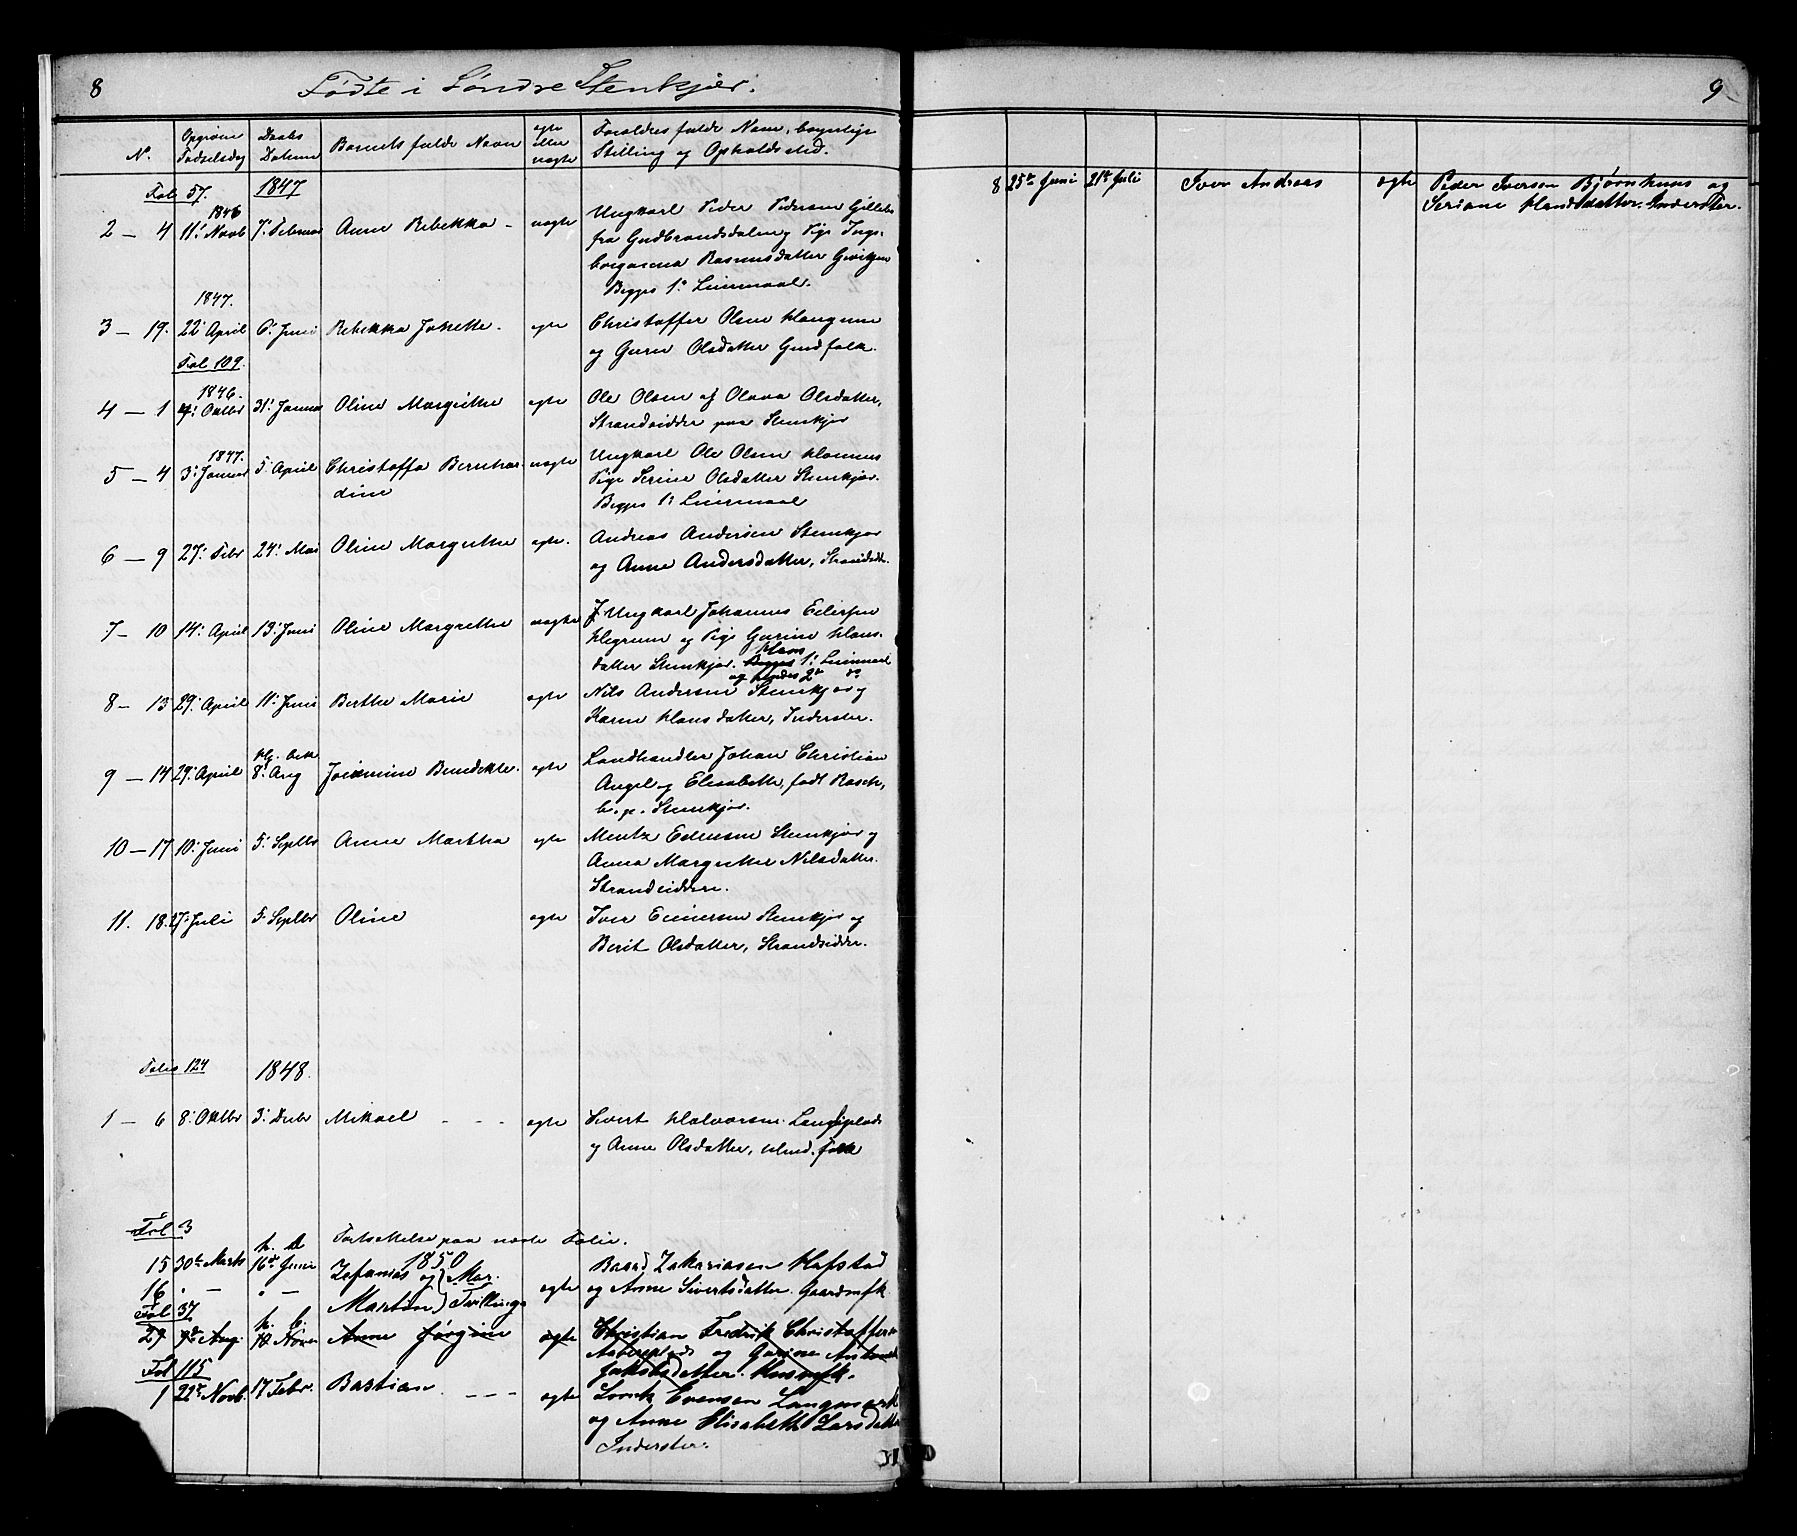 8
Fødte i Søndre Stenkjer.
N. Opgiven Fødselsdag Daabs Datum Barnets fulde Navn egte eller uegte Forældres fulde Navn, borgerlige Stilling og Opholdssted.
Fol 57. 1847
2 – 4 1846 11' Novb 7' Februar Anne Rebekka – uegte Ungkarl Peder Pedersen
fra Gudbrandsdalen og Pige Inge-
borganna Rasmusdatter
Begges 1' Leiermaal.
1847.
3 – 19. 22' April 6' Juni Rebekka Johette. egte Christoffer Olsen Haugum
og Guru Olsdatter Gmdfolk.
Fol 109.
4 – 1 1846. Octbr 31' Januar Oline Margrethe egte Ole Olsen og Olava Olsdatter,
Strandsidder paa Stenkjer
5 – 4 1847. 3' Januar 5' April Christoffa Bernhar-
dine uegte Ungkarl Ole Olsen
Pige Serine Olsdatter Stenkjer.
Begges 1' Leiermaal
6 – 9 27' Febr 24' Mai Oline Margrethe egte. Andreas Andersen Stenkjer
og Anne Andersdatter, Strandsidd.
7 – 10 14' April 13' Juni Oline Margrethe uegte Ungkarl Johannes
og Pige Gurine Hans-
datter Stenkjer. Hans Begges 1' Leiermaal
og Hendes 2' do
8 – 13 29' April 11' Juni Berthe Marie egte Nils Andersen Stenkjer og
Karen Hansdatter, Inderster.
9 – 14 29' April Hj. 8' Aug Benedikte. egte Landhandler Johan Christian
Angel og Elisabeth, født Rasch,
Stenkjer.
10 – 17 10' Juni 5' Septbr Anne Martha egte Mentz Stenkjer og
Anna Margrethe Nilsdatter.
Strandsiddere.
11. 18. 27' Juli 5' Septbr Oline egte Iver Stenkjer og
Berit Olsdatter, Strandsidder.
Folio 124 1848.
1 – 6 8' Oktbr 3' Decbr Mikael - - - egte Sivert Halvorsen
og Anne Olsdatter, folk
Fol 3 Fortsættelse paa neste Folie.
1850
15 30te Marts h. d. 16de Juni Zefanias og Mar. Baard Zakariasen Hafstad
16 " – " – Martin Tvillinge egte og Anne Sivertsdatter. Gaardmfk.
Fol 37
27 7de Aug. h. 10 Novem Anne Jørgine egte Christian Fredrik Christoffersen
og Gurine
Jakobsdatter. Husmfk.
Fol 115
1 22de Novb. 17 Febr. Bastian. - - - egte Lornts Evensen Langmark
og Anne Elisabeth Larsdatter
Inderster.
9
8 25de Juni 21de Juli Iver Andreas egte Peder Iversen Bjørnhuus og
Seriane Hansdatter. Inderster.